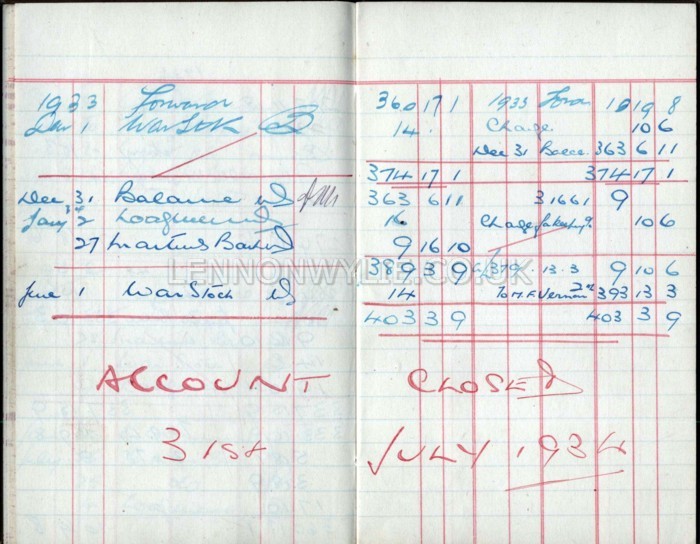 1933 Forward 360 17 1 1933 Forw 10 19 8
Dec 1 War Stk 14 . Charge 10 6
Dec 31 Balce 363 6 11
374 17 1 374 17 1
Dec 31 Balance 363 6 11 31661 9
Jany 2 16 Charge 10 6
27 Martins Bank 9 16 10
389 3 9 379 . 13 . 3 9 10 6
June 1 War Stock 14 To M. F. Vernon 393 13 3
403 3 9 403 3 9
LENNONWYLIE.CO.UK
ACCOUNT CLOSED
31st JULY 1934